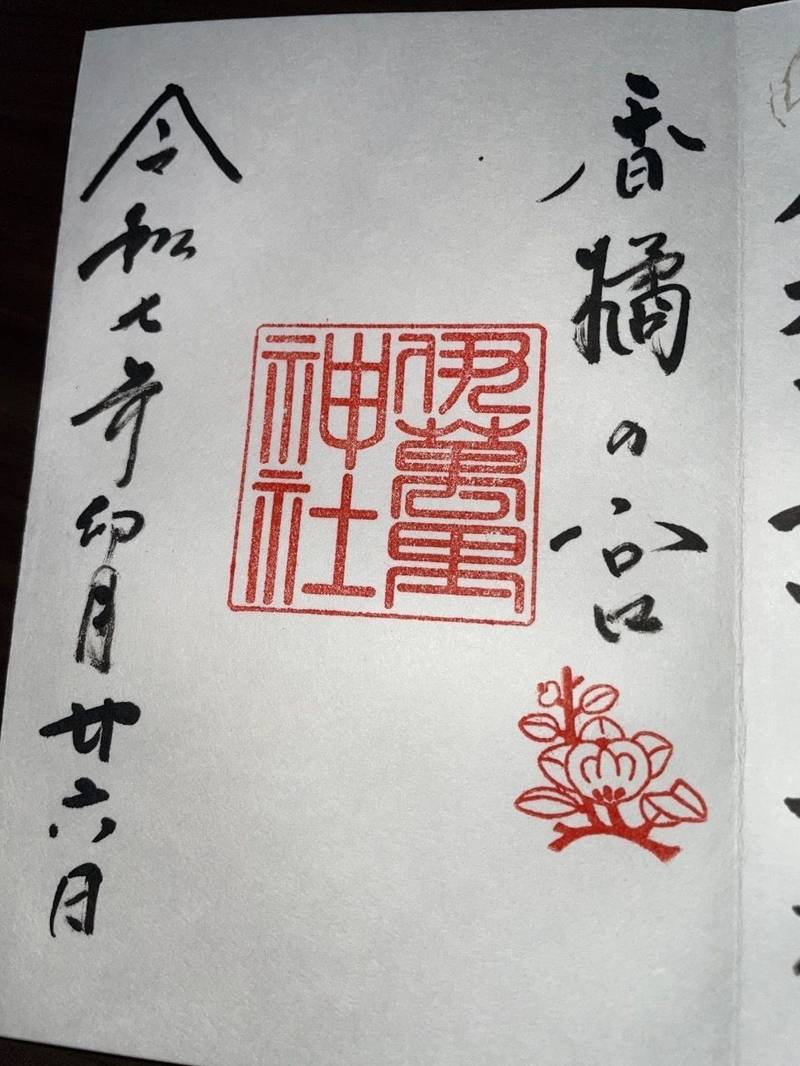 香橘の宮
伊萬里
神社
令和七年卯月廿六日